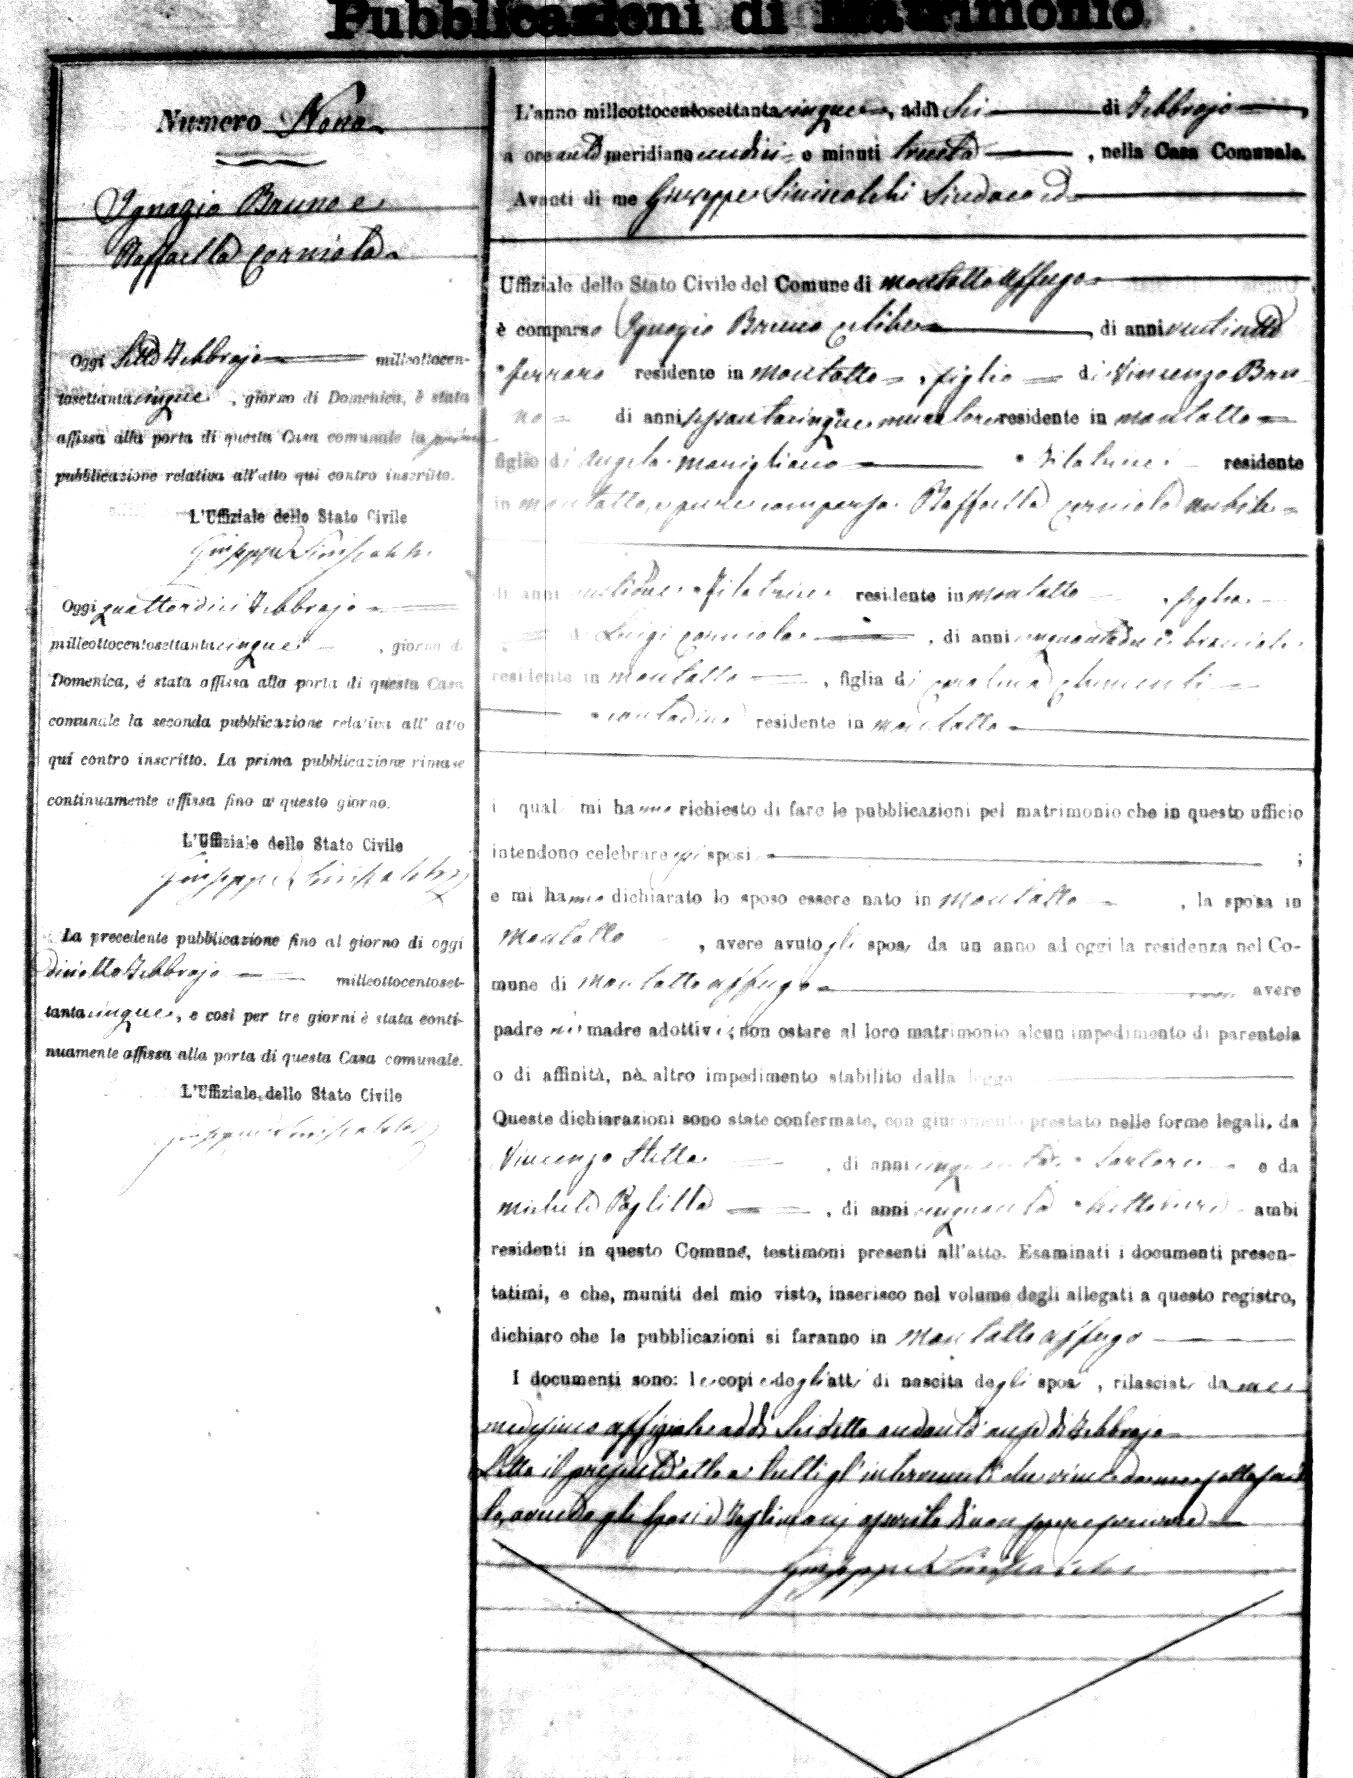 Pubblicazioni di Matrimonio
Numero Nono
Ignazio Bruno e
Raffaella Corniola
Oggi sette Febbrajo milleottocen-
tosettantacinque, giorno di Domenica, è stata
affissa alla porta di questa Casa comunale la prima
pubblicazione relativa all'atto qui contro inscritto.
L'Uffiziale dello Stato Civile
Giuseppe Siniscalchi
Oggi quattordici Febbrajo
milleottocentosettantacinque, giorno di
Domenica, é stata affissa alla porta di questa Casa
comunale la seconda pubblicazione relativa all' atto
qui contro inscritto. La prima pubblicazione rimase
continuamente affissa fino a questo giorno.
L'Uffiziale dello Stato Civile
Giuseppe Siniscalchi
La precedente pubblicazione fino al giorno di oggi
diciotto Febbrajo milleottocentoset-
tantacinque, e così per tre giorni è stata conti-
nuamente affissa alla porta di questa Casa comunale.
L'Uffiziale dello Stato Civile
Giuseppe Siniscalchi
L'anno milleottocentosettantacinque, addì sei di Febbrajo,
a ore antimeridiane undici e minuti trenta, nella Casa Comunale.
Avanti di me Giuseppe Siniscalchi Sindaco ed
Uffiziale dello Stato Civile del Comune di Montalto Uffugo
è comparso Ignazio Bruno celibe, di anni ventisette
ferraro residente in Montalto, figlio di Vincenzo Bru-
no di anni sessantacinque residente in Montalto
figlio di Angela Marigliano Filatrice residente
in Montalto, e pure comparsa Raffaella Corniola nubile
di anni Filatrice residente in Montalto, figlia
di Luigi Corniola, di anni cinquantadue bracciale
residente in Montalto, figlia di Carolina Chimenti
contadina residente in Montalto
i quali mi hanno richiesto di fare le pubblicazioni pel matrimonio che in questo ufficio
intendono celebrare essi sposi;
e mi hanno dichiarato lo sposo essere nato in Montalto, la sposa in
Montalto, avere avuto gli sposi da un anno ad oggi la residenza nel Co-
mune di Montalto Uffugo non avere
padre nè madre adottivi; non ostare al loro matrimonio alcun impedimento di parentela
o di affinità, nè altro impedimento stabilito dalla legge
Queste dichiarazioni sono state confermate, con giuramento prestato nelle forme legali, da
Vincenzo Stella, di anni Sartore e da
Michele, di anni cinquanta ambi
residenti in questo Comune, testimoni presenti all'atto. Esaminati i documenti presen-
tatimi, e che, muniti del mio visto, inserisco nel volume degli allegati a questo registro,
dichiaro che le pubblicazioni si faranno in Montalto Uffugo
I documenti sono: le copie degli atti di nascita degli sposi, rilasciate da me
medesimo uffiziale addì sei dello andante mese di Febbrajo
Letto il presente atto a tutti gl'intervenuti che viene da me sottoscrit-
to, avendo gli sposi e testimonj asserito di non sapere scrivere
Giuseppe Siniscalchi